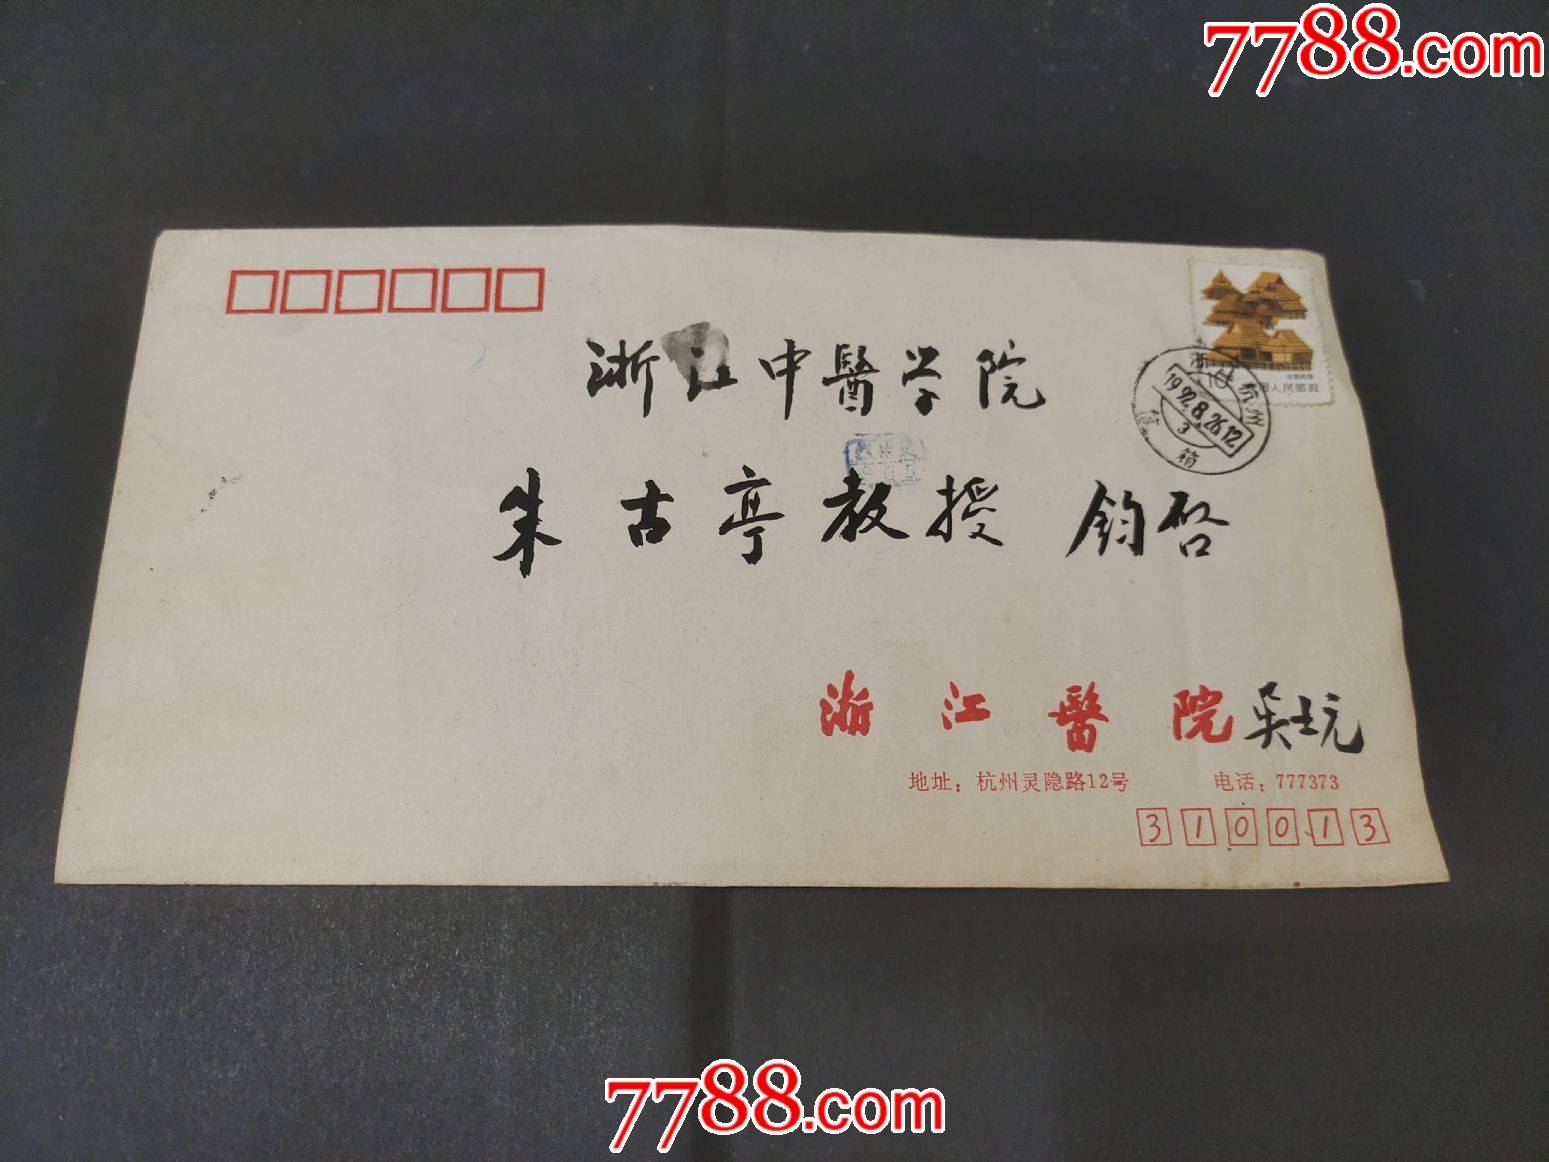 7788.com
浙江中醫学院
朱古亭教授 鈞啓
浙江杭州
1992.8.26.12
3
信箱
10
中国人民邮政
浙江醫院 吴士元
地址：杭州灵隐路12号 电话：777373
310013
7788.com